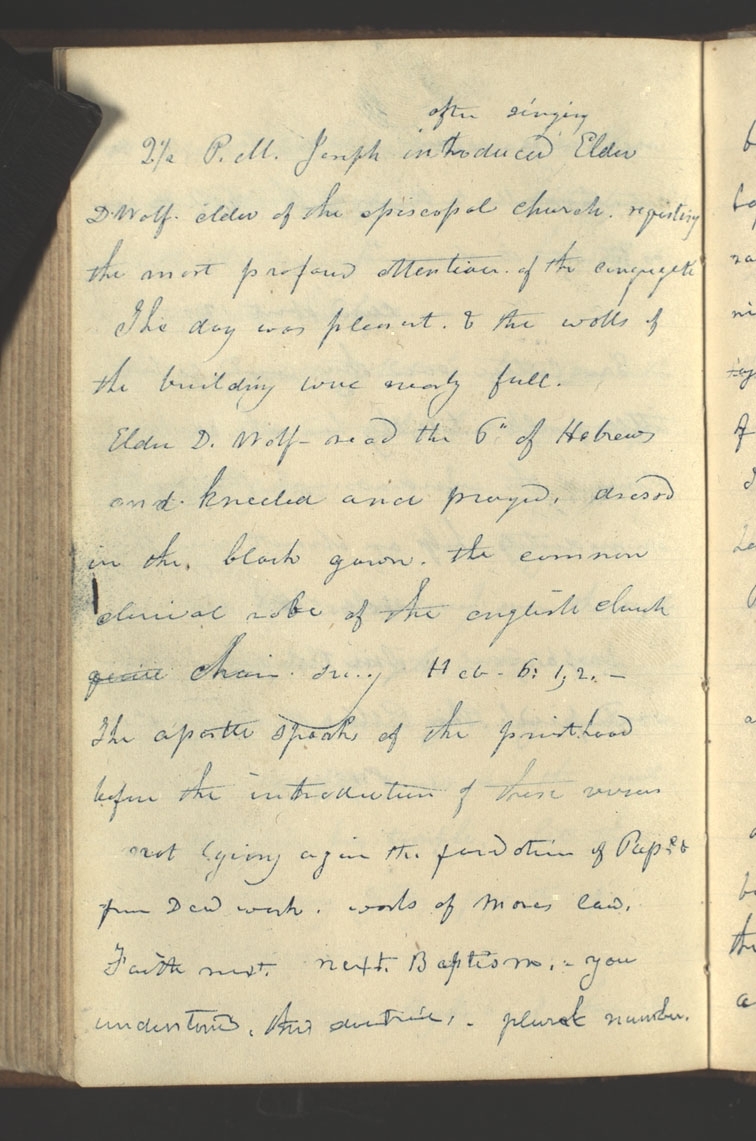 after singing
2½ P.M. Joseph introduced Elder
D. Wolf. elder of the episcopal church. requesting
the most profound attention. of the congregati
The day was pleasant. & the walls of
the building were nearly full.
Elder D. Wolf- read the 6" of Hebrews
and kneeled and prayed, dressd
in the. black gown. the common
clerical robe of the english church
quire choir. sung Heb- 6: 1, 2. -
The apostle speaks of the priesthood
before the introduction of these verses
not laying again the foundation of Rep. &
from Dead work. works of Moses law.
Faith next. next. Baptism. - you
understand, this doctrine, - plural number.